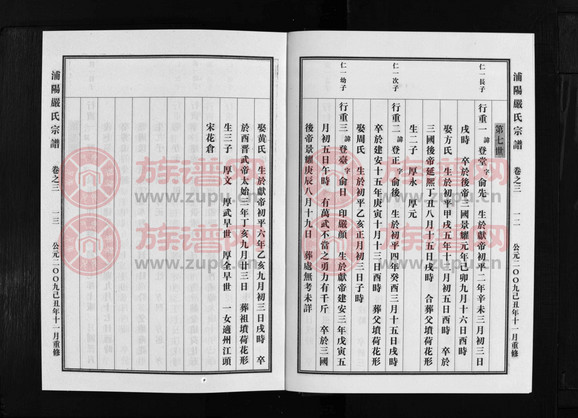 浦陽嚴氏宗譜 卷之三 一二 公元二〇〇九己丑年十一月重修
第七世
仁一長子 行重一 諱登堂 字俞先 生於初平二年辛未三月初三日
戌時 卒於後帝三國景耀元年己卯九月十六日酉時
娶方氏 生於初平甲戌五年十一月初五日酉時 卒於
三國後帝延熙丁丑八月十五日戌時 合葬父墳荷花形
生二子 厚水 厚元
仁一次子 行重二 諱登正 字俞後 生於初平四年癸酉三月十五日戌時
卒於建安十五年庚寅十月十三日酉時 葬父墳荷花形
娶周氏 生於初平乙亥正月初三日子時
仁一幼子 行重三 諱登臺 字俞日 印嚴顏 生於獻帝建安三年戊寅五
月初五日午時 有萬武不當之勇力有千斤 卒於三國
後帝景耀庚辰八月十九日 葬處無考未詳
娶黃氏 生於獻帝初平六年乙亥九月初三日戌時 卒
於西晋武帝太始三年丁亥九月廿三日 葬祖墳荷花形
生三子 厚文 厚武早世 厚全早世 一女適州江頭
宋花倉
浦陽嚴氏宗譜 卷之三 一三 公元二〇〇九己丑年十一月重修
族谱网
www.zupu.cn
族谱网
www.zupu.cn
族谱网
www.zupu.cn
族谱网
www.zupu.cn